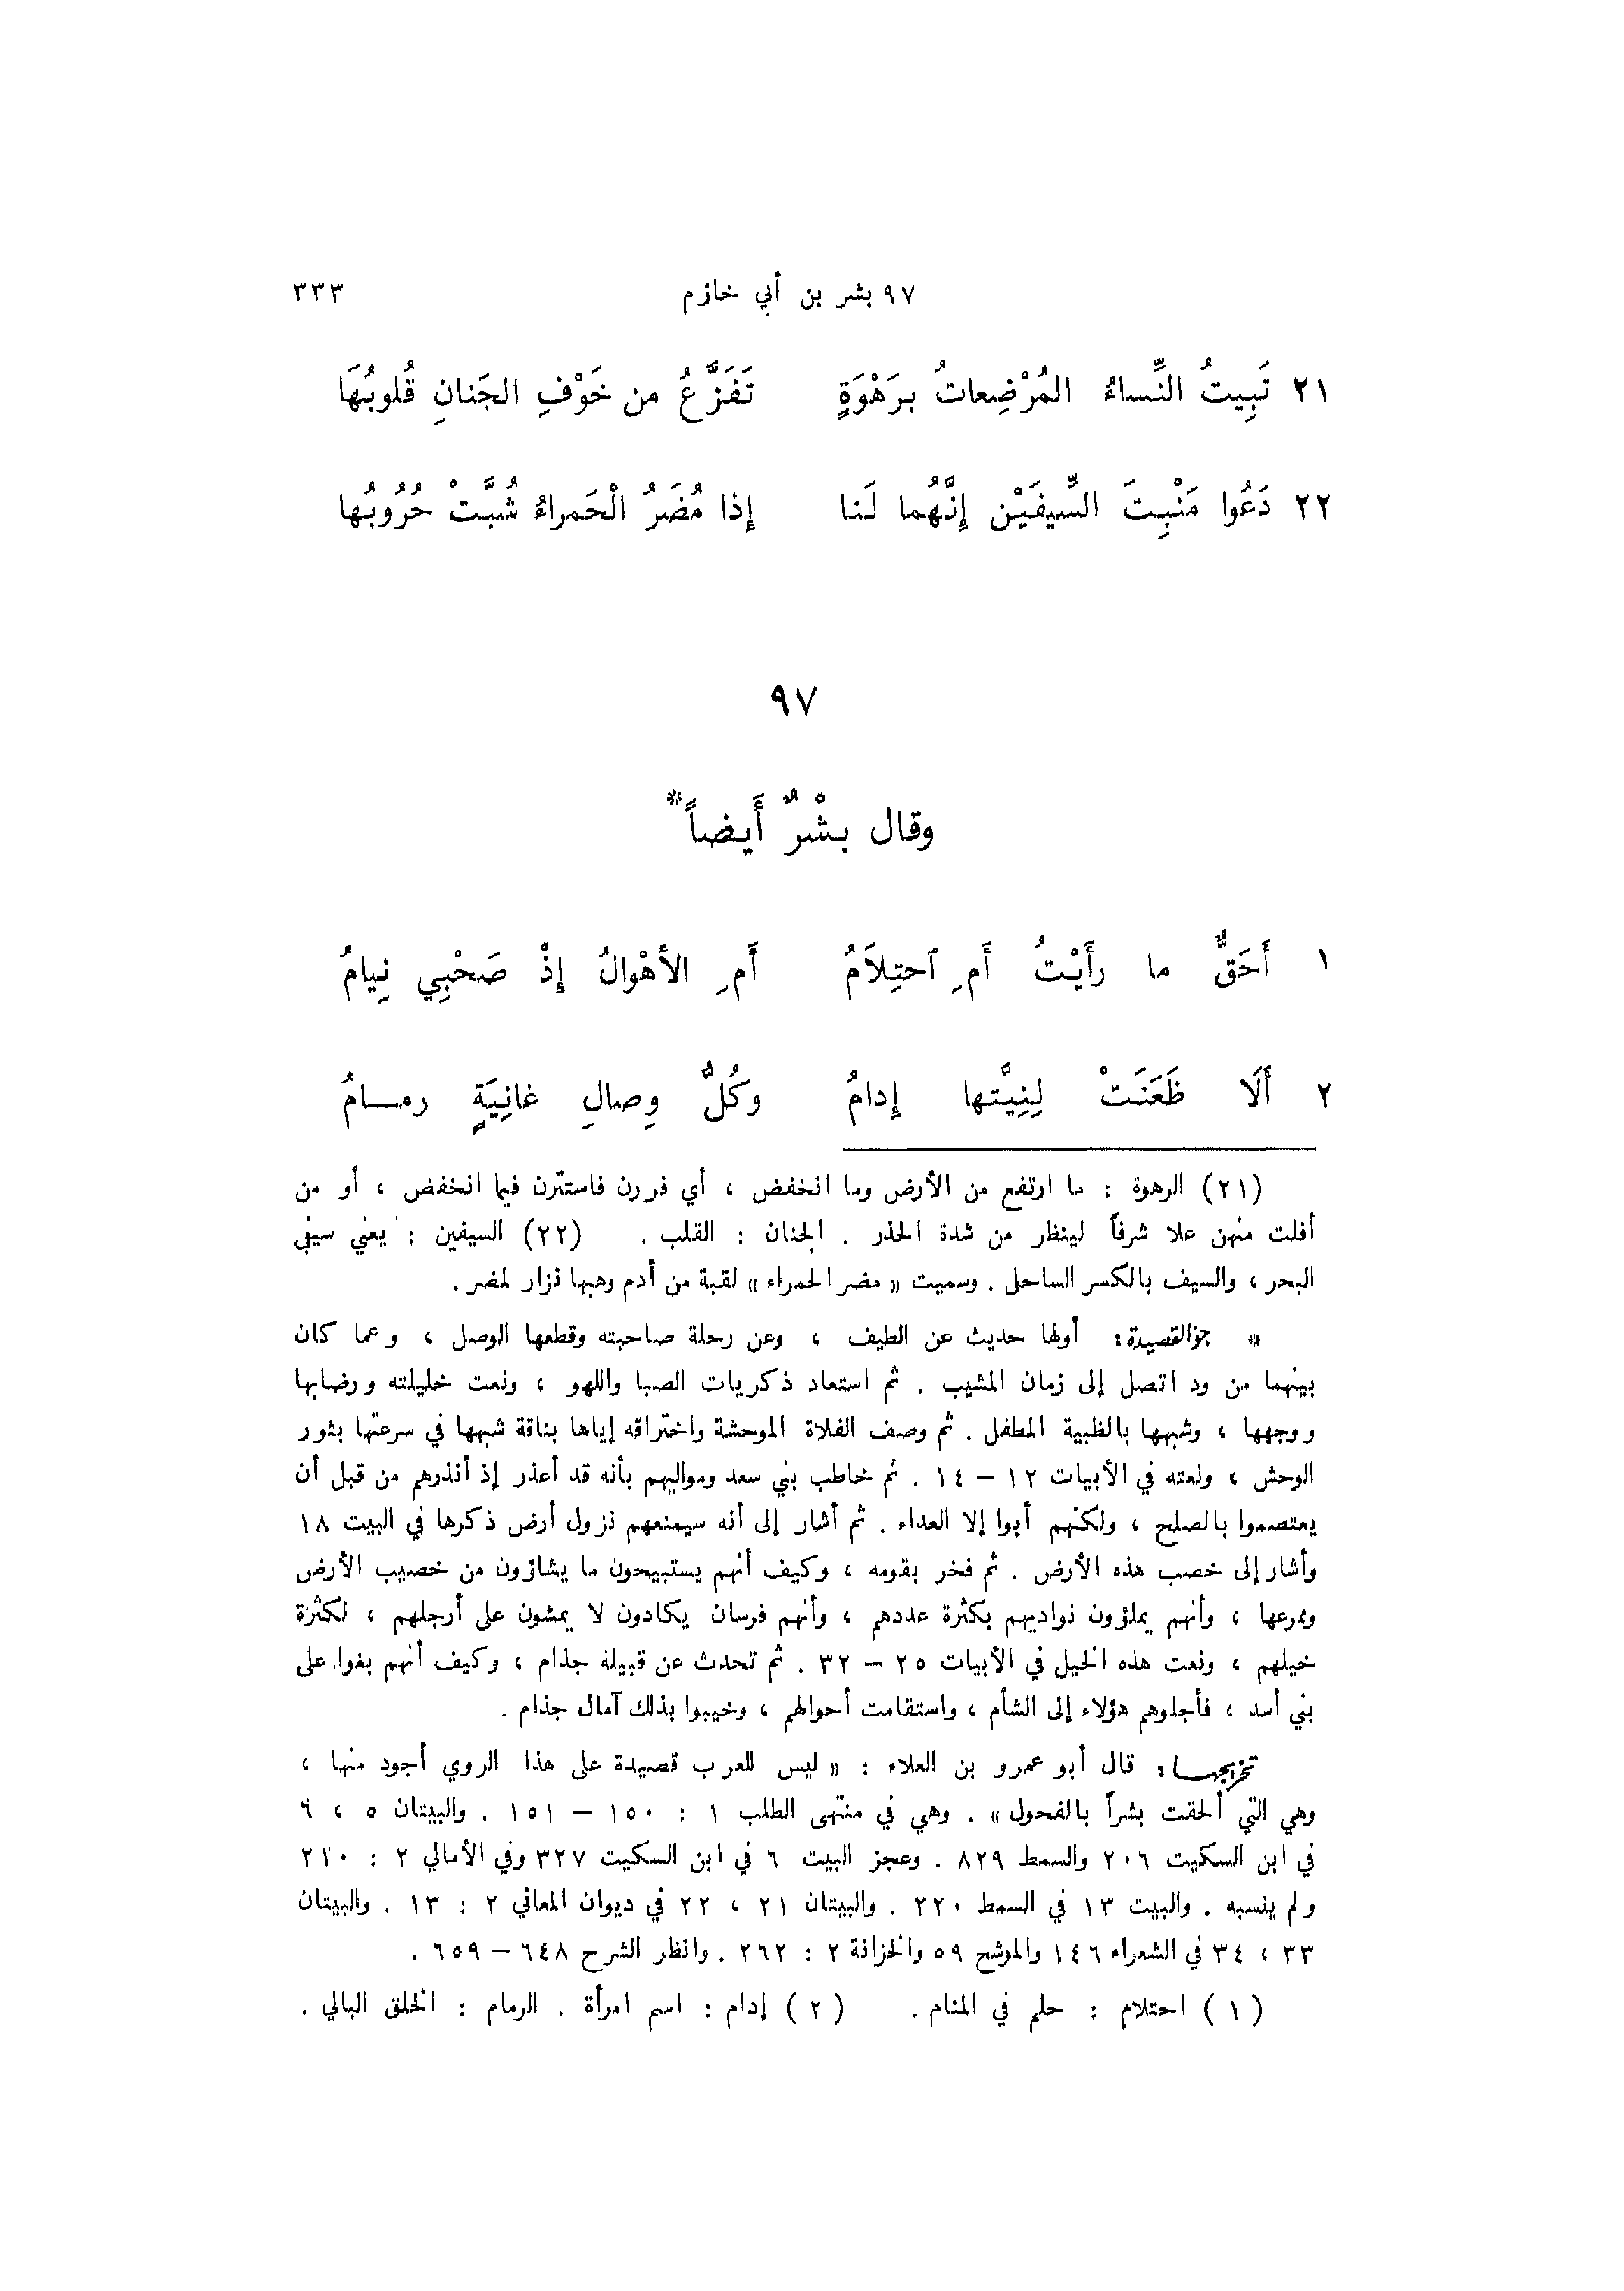 ٩٧ بشر بن أبي خازم ٣٣٣
٢١ تَبِيتُ النِّساءُ المُرْضِعاتُ بِرَهْوَةٍ تَفَزَّعُ من خَوْفِ الجَنانِ قُلوبُهَا
٢٢ دَعُوا مَنْبِتَ السِّيفَيْنِ إِنَّهُما لَنا إِذا مُضَرُ الْحَمراءُ شُبَّتْ حُرُوبُها
٩٧
وقال بشْرٌ أَيضاً*
١ أَحَقٌّ ما رأَيْتُ أَمِ ٱحتِلَامُ أَمِ الأهْوالُ إِذْ صَحْبِي نِيامُ
٢ أَلَا ظَعَنَتْ لِنِيَّتها إِدامُ وكُلُّ وِصالِ غانِيَةٍ رمـامُ
(٢١) الرهوة : ما ارتفع من الأرض وما انخفض ، أي فررن فاستترن فيما انخفض ، أو من
أفلت منهن علا شرفاً لينظر من شدة الحذر . الجنان : القلب . (٢٢) السيفين : يعني سيفي
البحر ، والسيف بالكسر الساحل . وسميت « مضر الحمراء » لقبة من أدم وهبها نزار لمضر .
* جو القصيدة : أولها حديث عن الطيف ، وعن رحلة صاحبته وقطعها الوصل ، وعما كان
بينهما من ود اتصل إلى زمان المشيب . ثم استعاد ذكريات الصبا واللهو ، ونعت خليلته ورضابها
ووجهها ، وشبهها بالظبية المطفل . ثم وصف الفلاة الموحشة واختراقه إياها بناقة شبهها في سرعتها بثور
الوحش ، ونعته في الأبيات ١٢ – ١٤ . ثم خاطب بني سعد ومواليهم بأنه قد أعذر إذ أنذرهم من قبل أن
يعتصموا بالصلح ، ولكنهم أبوا إلا العداء . ثم أشار إلى أنه سيمنعهم نزول أرض ذكرها في البيت ١٨
وأشار إلى خصب هذه الأرض . ثم فخر بقومه ، وكيف أنهم يستبيحون ما يشاؤون من خصيب الأرض
وممرعها ، وأنهم يملؤون نواديهم بكثرة عددهم ، وأنهم فرسان يكادون لا يمشون على أرجلهم ، لكثرة
خيلهم ، ونعت هذه الخيل في الأبيات ٢٥ – ٣٢ . ثم تحدث عن قبيلة جذام ، وكيف أنهم بغوا على
بني أسد ، فأجلوهم هؤلاء إلى الشأم ، واستقامت أحوالهم ، وخيبوا بذلك آمال جذام .
تخريجهـا : قال أبو عمرو بن العلاء : « ليس للعرب قصيدة على هذا الروي أجود منها ،
وهي التي ألحقت بشراً بالفحول » . وهي في منتهى الطلب ١ : ١٥٠ – ١٥١ . والبيتان ٥ ، ٦
في ابن السكيت ٢٠٦ والسمط ٨٢٩ . وعجز البيت ٦ في ابن السكيت ٣٢٧ وفي الأمالي ٢ : ٢١٠
ولم ينسبه . والبيت ١٣ في السمط ٢٢٠ . والبيتان ٢١ ، ٢٢ في ديوان المعاني ٢ : ١٣ . والبيتان
٣٣ ، ٣٤ في الشعراء ١٤٦ والموشح ٥٩ والخزانة ٢ : ٢٦٢ . وانظر الشرح ٦٤٨ – ٦٥٩ .
( ١ ) احتلام : حلم في المنام . ( ٢ ) إدام : اسم امرأة . الرمام : الخلق البالي .